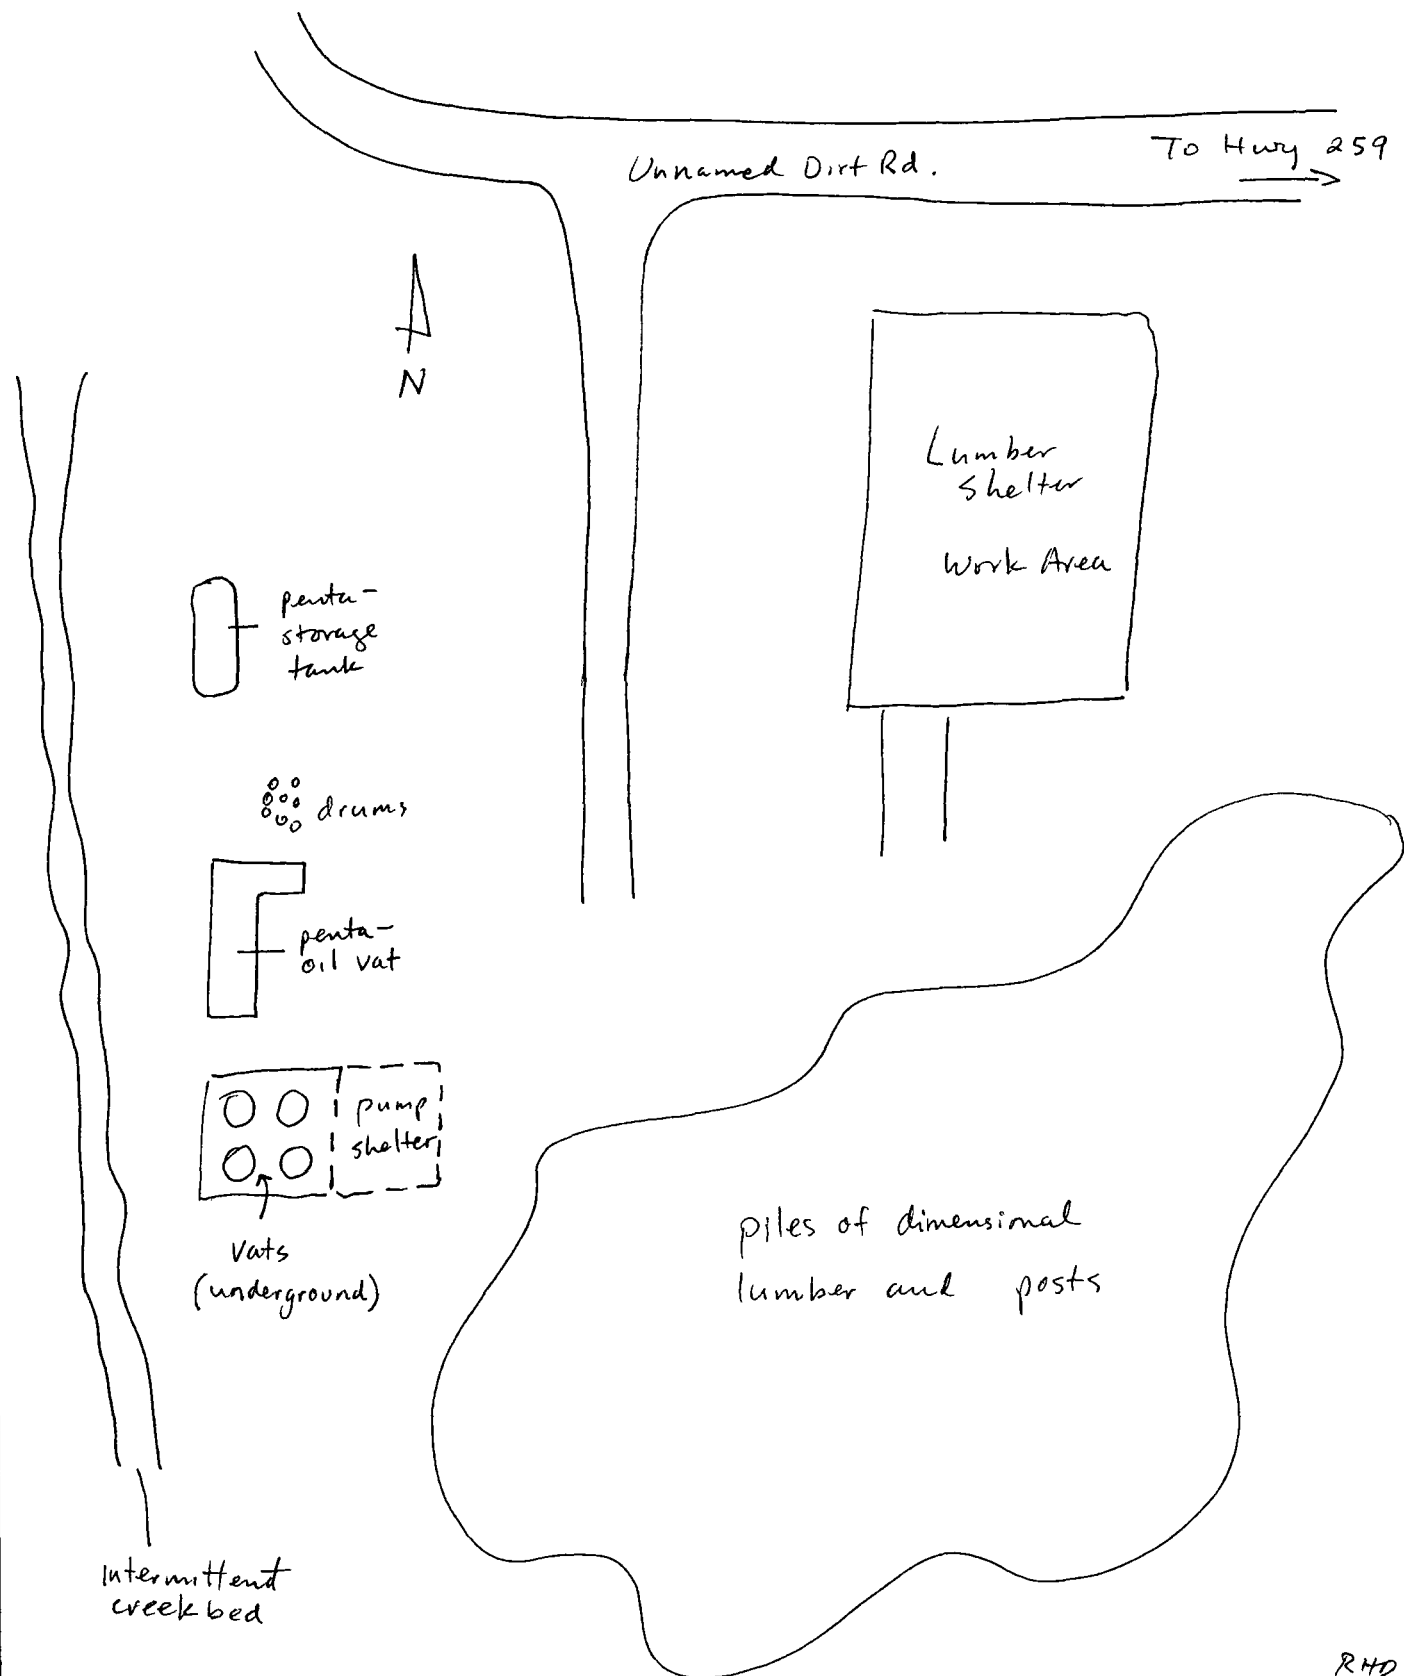 To Hwy 259
Unnamed Dirt Rd.
N
Lumber
Shelter
Work Area
penta-
storage
tank
drums
penta-
oil vat
pump
shelter
Vats
(underground)
piles of dimensional
lumber and posts
Intermittend
creek bed
RHD